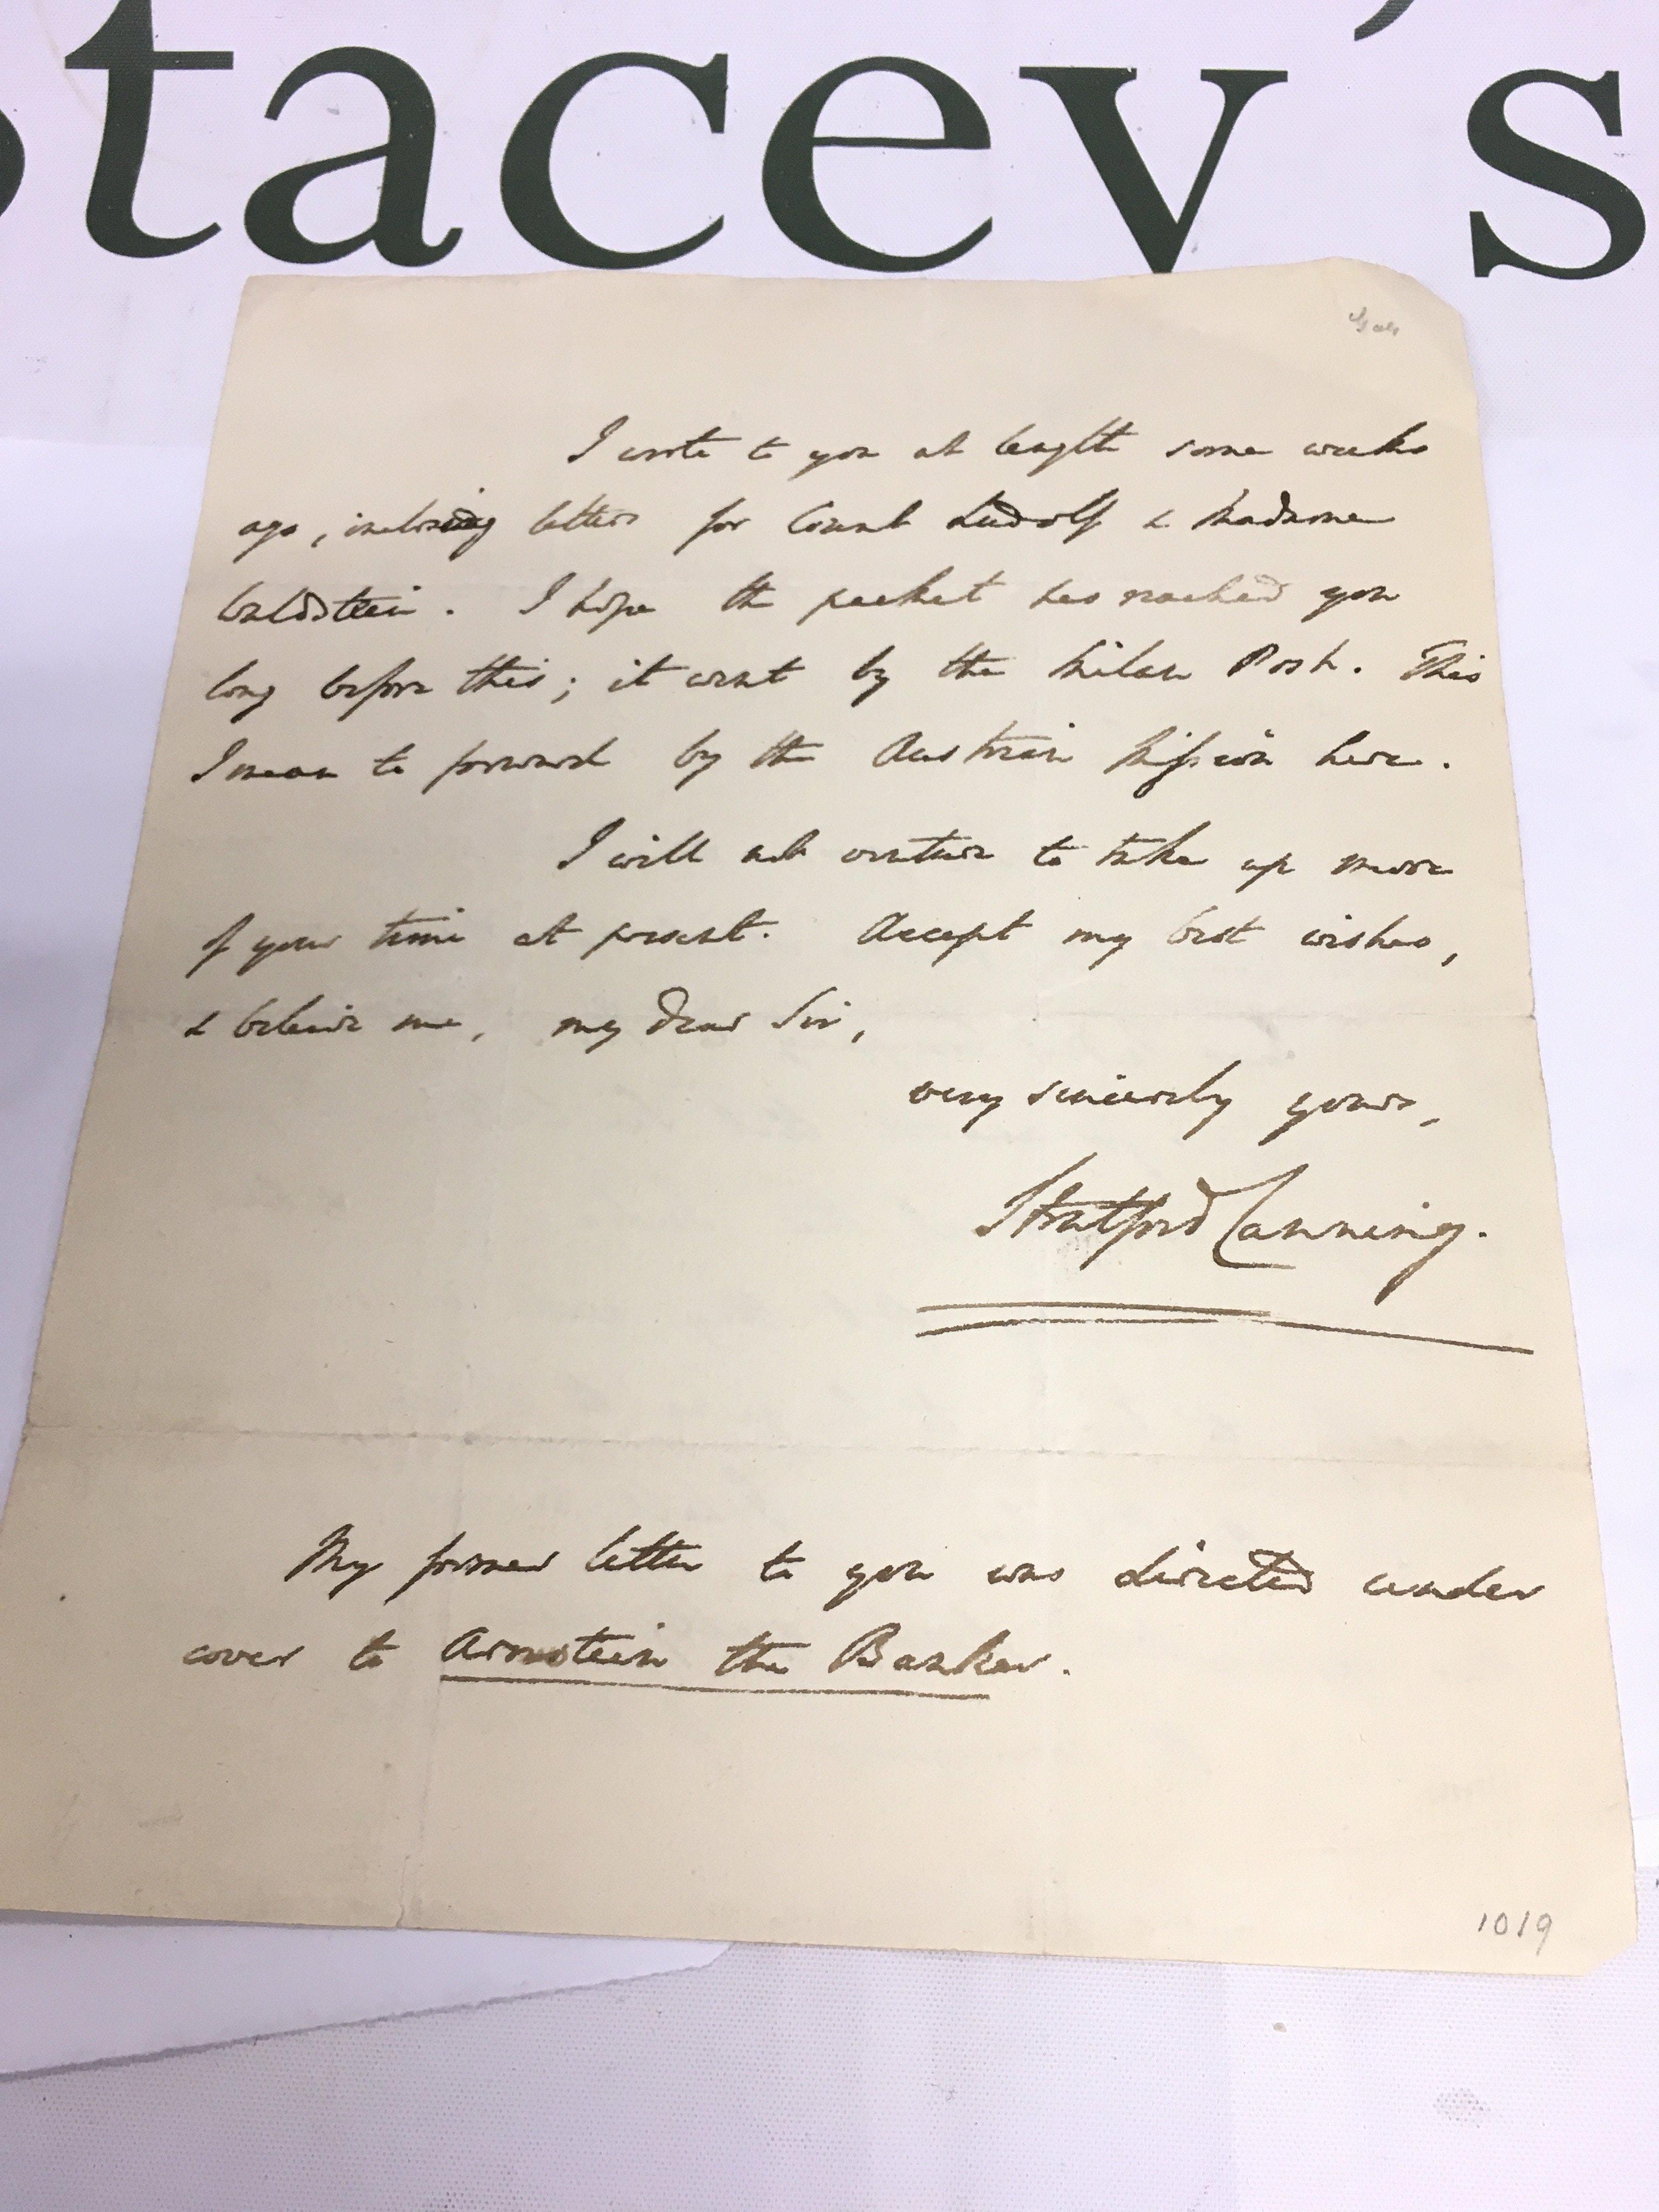 Stacey's
I wrote to you at length some weeks
ago, inclosing letters for Count Ludolf & Madame
Waldstein. I hope the packet has reached you
long before this; it went by the Milan Post. This
I mean to forward by the Austrian Mission here.
I will not venture to take up more
of your time at present. Accept my best wishes,
& believe me, my dear Sir,
very sincerely yours,
Stratford Canning.
My former letter to you was directed under
cover to Arnstein the Banker.
1019